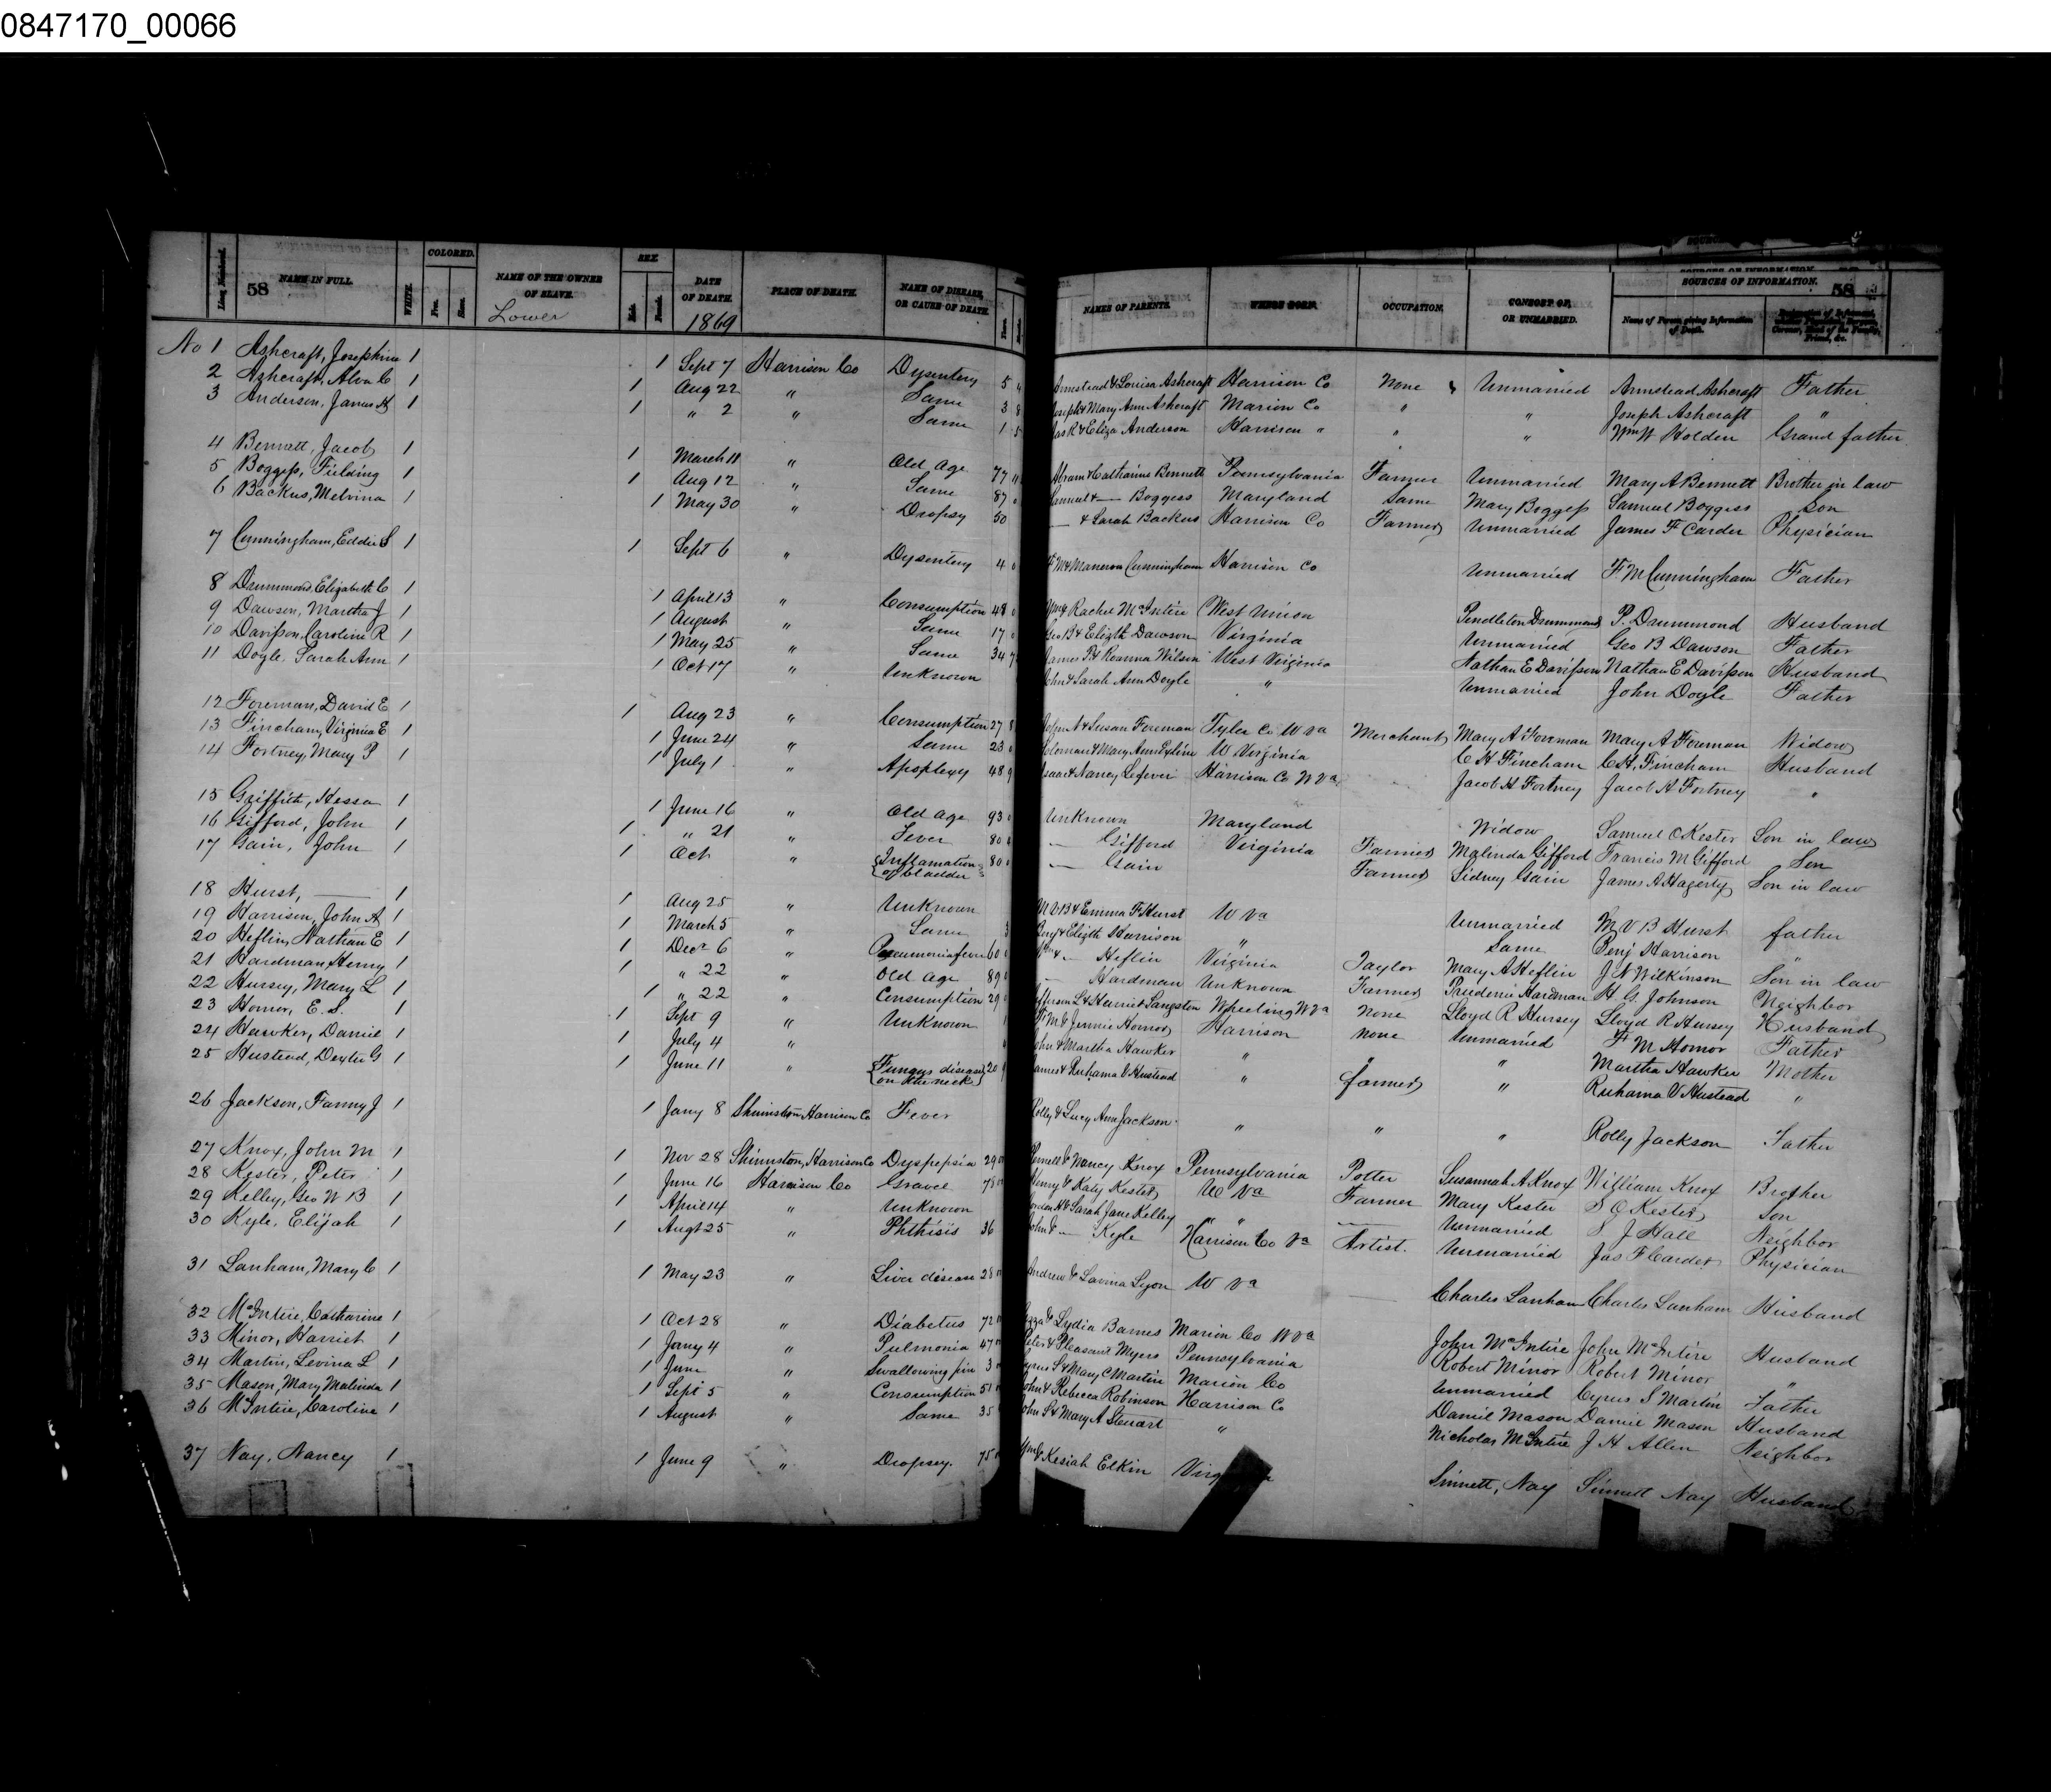 0847170_00066
58 NAME IN FULL. WHITE. COLORED. Free. Slave. NAME OF THE OWNER OF SLAVE. SEX. Male. Female. DATE OF DEATH. PLACE OF DEATH. NAME OF DISEASE, OR CAUSE OF DEATH. NAMES OF PARENTS. WHERE BORN. OCCUPATION. CONSORT OF, OR UNMARRIED. SOURCES OF INFORMATION. 58
Name of Person giving Information of Death.
Lower 1869
No 1 Ashcraft, Josephine 1 1 Sept 7 Harrison Co Dysentery 5 Armstead & Louisa Ashcraft Harrison Co None Unmarried Armstead Ashcraft Father
2 Ashcraft, Alva C 1 1 Aug 22 " Same 3 8 Joseph & Mary Ann Ashcraft Marion Co " " Joseph Ashcraft "
3 Anderson, James H 1 1 " 2 " Same 1 5 Jas R & Eliza Anderson Harrison " " " Wm W Holden Grand father
4 Bennett, Jacob 1 1 March 11 " Old Age 77 Abram & Catharine Bennett Pennsylvania Farmer Unmarried Mary A Bennett Brother in law
5 Boggess, Fielding 1 1 Aug 12 " Same 87 Samuel & — Boggess Maryland Same Mary Boggess Samuel Boggess Son
6 Backus, Melvina 1 1 May 30 " Dropsy 50 — & Sarah Backus Harrison Co Farmer Unmarried James F Carder Physician
7 Cunningham, Eddie S 1 1 Sept 6 " Dysentery 4 F M & Cunningham Harrison Co Unmarried F. M Cunningham Father
8 Drummond, Elizabeth C 1 1 April 13 " Consumption 48 Wm & Rachel McIntire West Union Pendleton Drummond P. Drummond Husband
9 Dawson, Martha J 1 1 August " Same 17 Geo B & Elizth Dawson Virginia Unmarried Geo B Dawson Father
10 Davisson, Caroline R 1 1 May 25 " Same 34 7 James P & Roanna Wilson West Virginia Nathan E Davisson Nathan E Davisson Husband
11 Doyle, Sarah Ann 1 1 Oct 17 " Unknown John & Sarah Ann Doyle " Unmarried John Doyle Father
12 Foreman, David E 1 1 Aug 23 " Consumption 27 8 John A & Susan Foreman Tyler Co W Va Merchant Mary A Foreman Mary A Foreman Widow
13 Fincham, Virginia E 1 1 June 24 " Same 23 Coleman & Mary Ann W Virginia C H Fincham C H. Fincham Husband
14 Fortney, Mary P 1 1 July 1 " Apoplexy 48 9 Isaac & Nancy Lefever Harrison Co W Va Jacob H Fortney Jacob H Fortney "
15 Griffith, Hessa 1 1 June 16 " Old Age 93 Unknown Maryland Widow Samuel C Kester Son in law
16 Gifford, John 1 1 " 21 " Fever 80 — Gifford Virginia Farmer Malinda Gifford Francis M Gifford Son
17 Gain, John 1 1 Oct " Inflamation of bladder 80 — Gain Farmer Sidney Gain James A Hagerty Son in law
18 Hurst, — 1 1 Aug 25 " Unknown M V B & Emma F Hurst W Va Unmarried M V B Hurst father
19 Harrison, John A 1 1 March 5 " Same 3 Benj & Elizth Harrison " Same Benj Harrison "
20 Heflin, Nathan E 1 1 Decr 6 " Pneumonia fever 60 Wm & — Heflin Virginia Taylor Mary A Heflin J N Wilkinson Son in law
21 Hardman, Henry 1 1 " 22 " Old Age 89 — Hardman Unknown Farmer Prudence Hardman H G. Johnson Neighbor
22 Hursey, Mary L 1 1 " 22 " Consumption 29 Jefferson L & Harriet Sangston Wheeling W Va None Lloyd R Hursey Lloyd R Hursey Husband
23 Homor, E. S. 1 1 Sept 9 " Unknown F. M & Jennie Homor Harrison None Unmarried F M Homor Father
24 Hawker, Daniel 1 1 July 4 " John & Martha Hawker " " " Martha Hawker Mother
25 Hustead, Dexter G 1 1 June 11 " Fungus disease on the neck 20 James & Ruhama V Hustead " farmer " Ruhama V Hustead "
26 Jackson, Fanny J 1 1 Jany 8 Shinnston Harrison Co Fever Rolly & Lucy Ann Jackson " " " Rolly Jackson Father
27 Knox, John M 1 1 Nov 28 Shinnston, Harrison Co Dyspepsia 29 & Nancy Knox Pennsylvania Potter Susannah A Knox William Knox Brother
28 Kester, Peter 1 1 June 16 Harrison Co Gravel 78 Henry & Katy Kester W Va Farmer Mary Kester S C Kester Son
29 Kelley, Geo W B 1 1 April 14 " Unknown & Sarah Jane Kelley " " — Unmarried S J Hall Neighbor
30 Kyle, Elijah 1 1 Augt 25 " Phthisis 36 John & — Kyle Harrison Co Va Artist. Unmarried Jas F Carder Physician
31 Lanham, Mary C 1 1 May 23 " Liver disease 28 Andrew & Lavina Lyon W Va — Charles Lanham Charles Lanham Husband
32 McIntire, Catharine 1 1 Oct 28 " Diabetus 72 & Lydia Barnes Marion Co W Va John McIntire John McIntire Husband
33 Minor, Harriet 1 1 Jany 4 " Pulmonia 47 Peter & Pleasant Myers Pennsylvania Robert Minor Robert Minor "
34 Martin, Levina L 1 1 June " Swallowing pin 3 Cyrus S & Mary C Martin Marion Co Unmarried Cyrus S Martin Father
35 Mason, Mary Malinda 1 1 Sept 5 " Consumption 51 John & Rebecca Robinson Harrison Co Daniel Mason Daniel Mason Husband
36 McIntire, Caroline 1 1 August " Same 35 John S & Mary A Stewart " Nicholas McIntire J H Allen Neighbor
37 Nay, Nancy 1 1 June 9 " Dropsey. 75 Wm & Kesiah Elkin Sinnett, Nay Sinnett Nay Husband